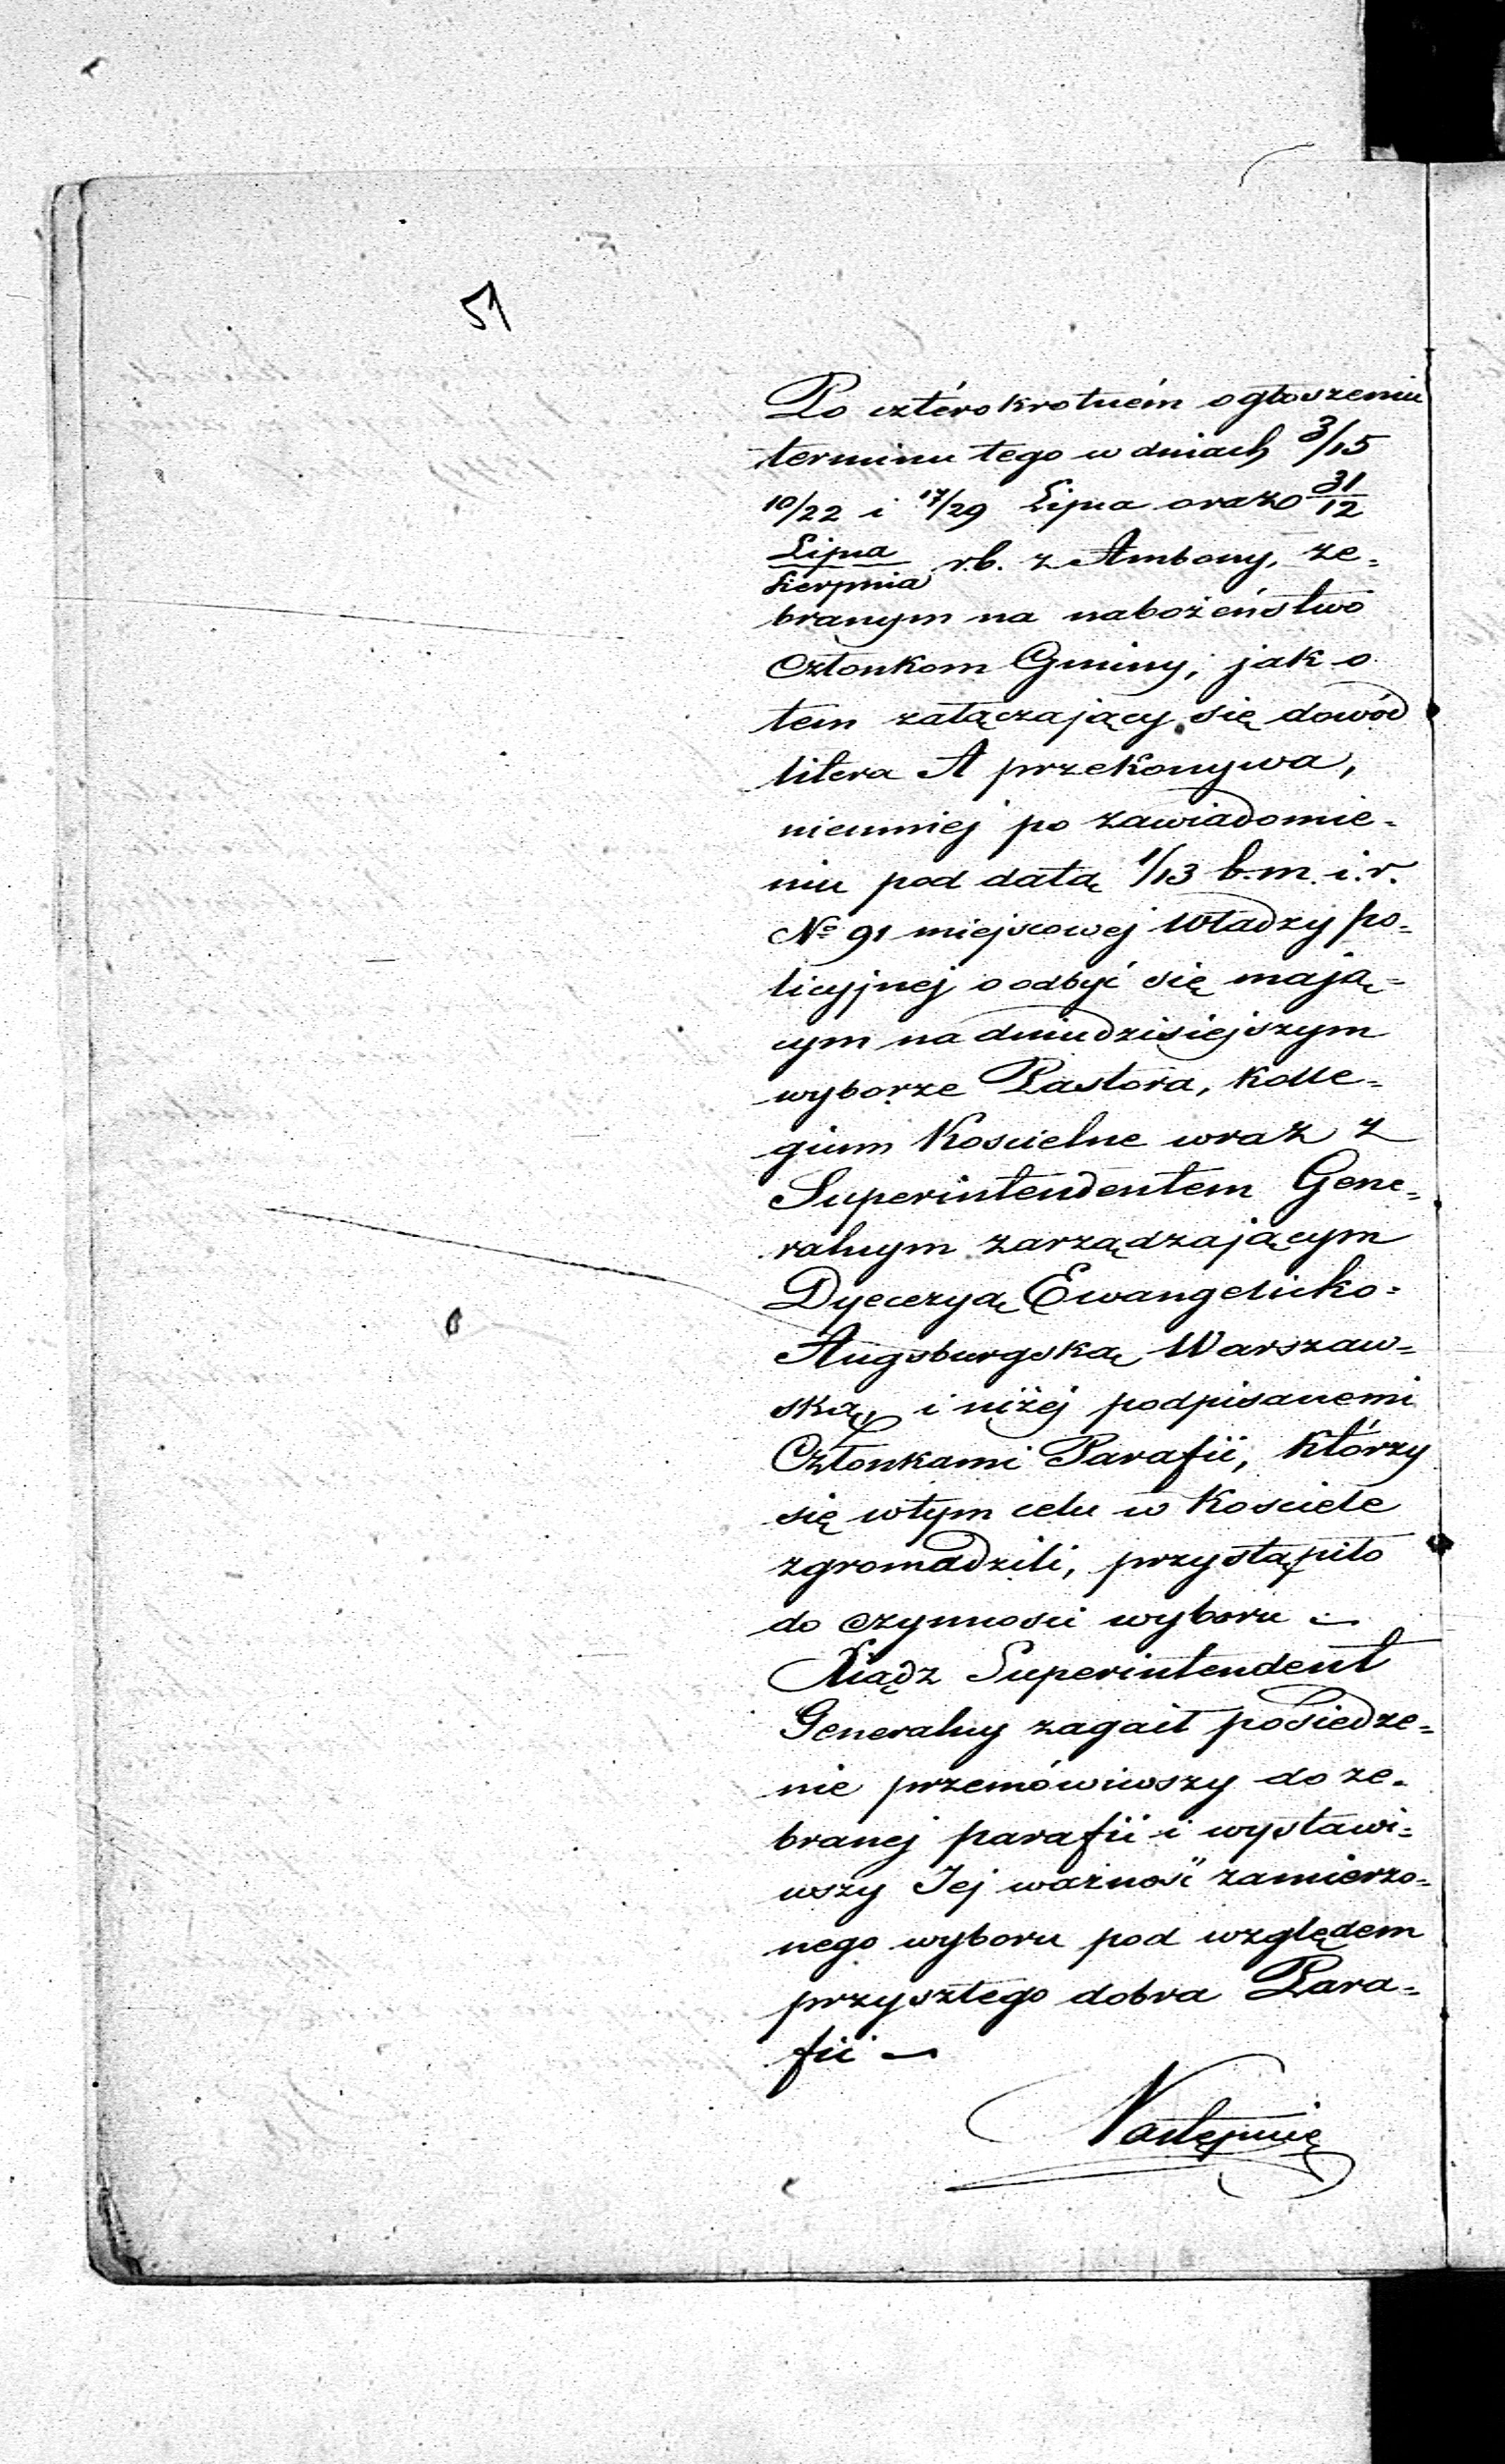 51
Po cztérokrotném ogłoszeniu
terminu tego w dniach 3/15
10/22 i 17/29 Lipca oraz 31/12
Lipca/Sierpnia r.b. z Ambony, ze=
branym na nabożeństwo
Członkom Gminy, jak o
tem załączający się dowód
litera A przekonywa,
niemniej po zawiadomie=
niu pod datą 1/13 b.m. i.r.
№ 91 miejscowej Władzy po=
licyjnej o odbyć się mają=
cym na dniu dzisiejszym
wyborze Pastora, Kolle=
gium Koscielne wraz z
Superintendentem Gene=
ralnym zarządzającym
Dyecezyą Ewangelicko=
Augsburgską Warszaw=
ską, i niżéj podpisanemi
Członkami Parafii, którzy
się w tym celu w Kosciele
zgromadzili, przystąpiło
do czynnosci wyboru –
Xiądz Superintendent
Generalny zagaił posiedze=
nie przemówiwszy do ze=
branej parafii i wystawi=
wszy Jej ważność zamierzo=
nego wyboru pod względem
przyszłego dobra Para=
fii –
Następnie